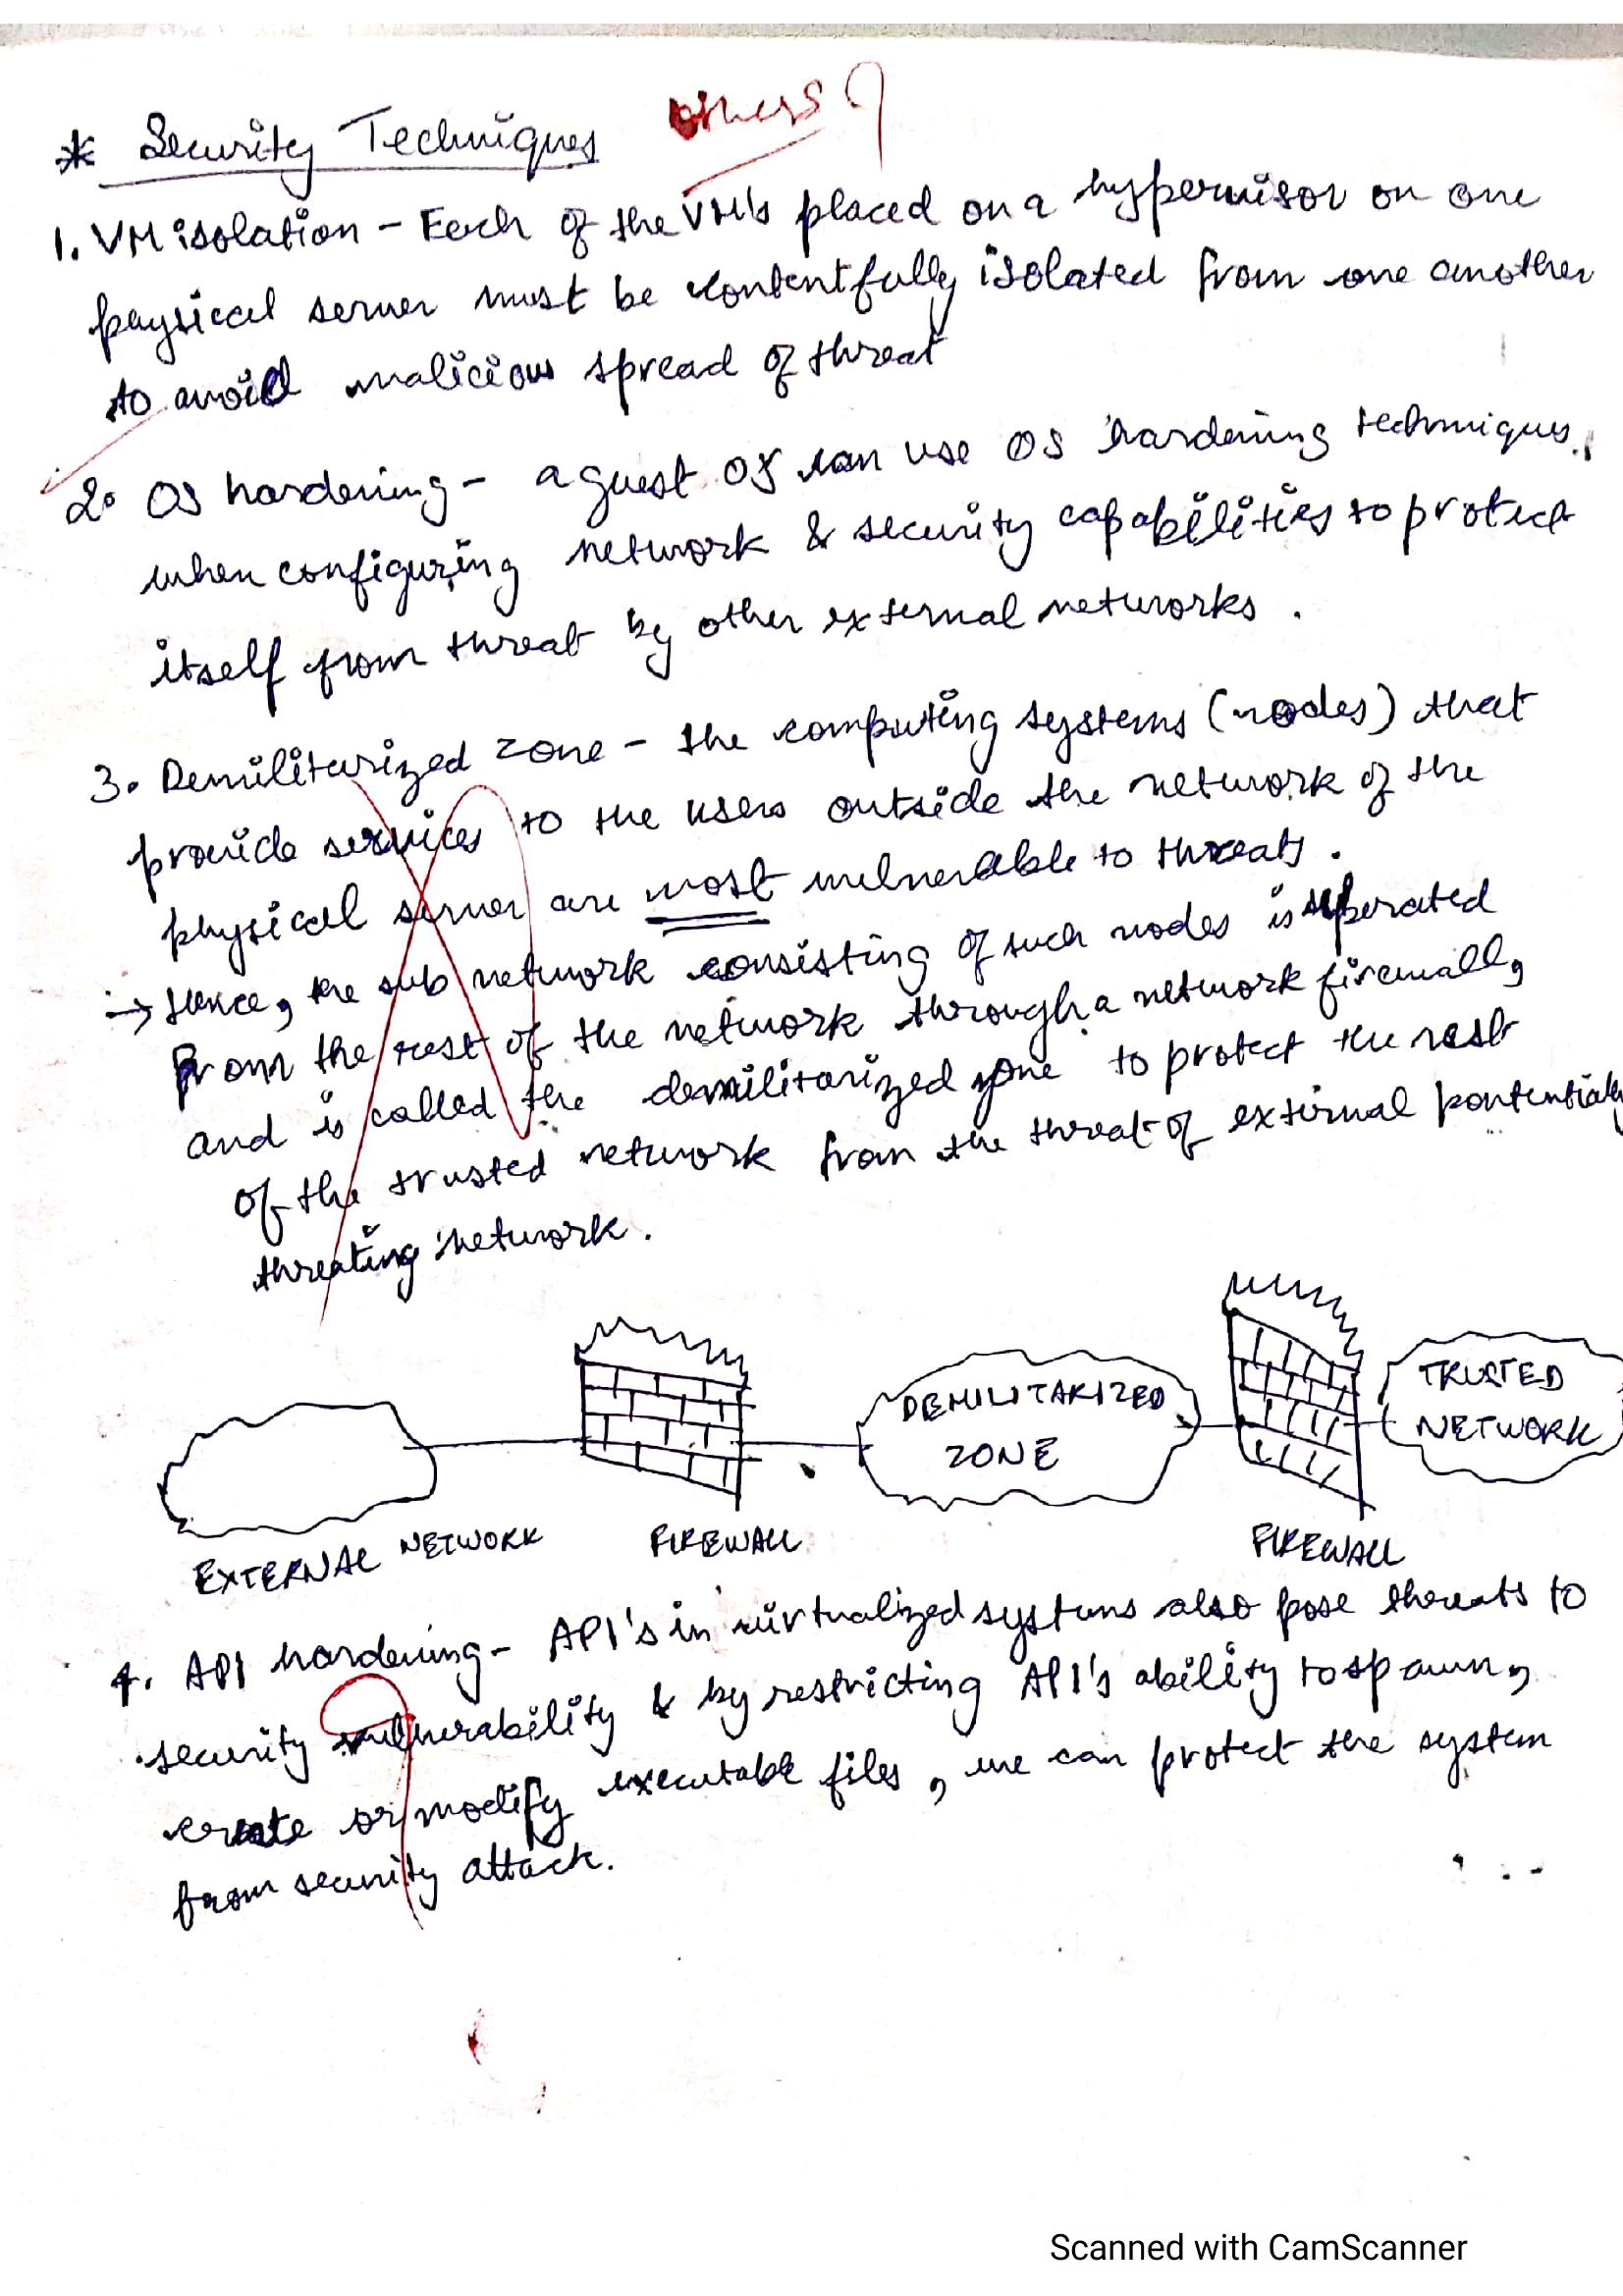 * Security Techniques others ?
1. VM isolation - Each of the VM's placed on a hypervisor on one
physical server must be contentfully isolated from one another
to avoid malicious spread of threat
2. OS hardening - a guest OS can use OS hardening techniques.
when configuring network & security capabilities to protect
itself from threat by other external networks.
3. Demilitarized zone - the computing systems (nodes) that
provide services to the users outside the network of the
physical server are most vulnerable to threats.
→ Hence, the sub network consisting of such nodes is seperated
from the rest of the network through a network firewall,
and is called the demilitarized zone to protect the rest
of the trusted network from the threat of external pontentialy
threating network.
EXTERNAL NETWORK
FIREWALL
DEMILITARIZED
ZONE
FIREWALL
TRUSTED
NETWORK
4. API hardening - API's in virtualized systems also pose threats to
security vulnerability & by restricting API's ability to spawn,
create or modify executable files, we can protect the system
from security attack.
Scanned with CamScanner